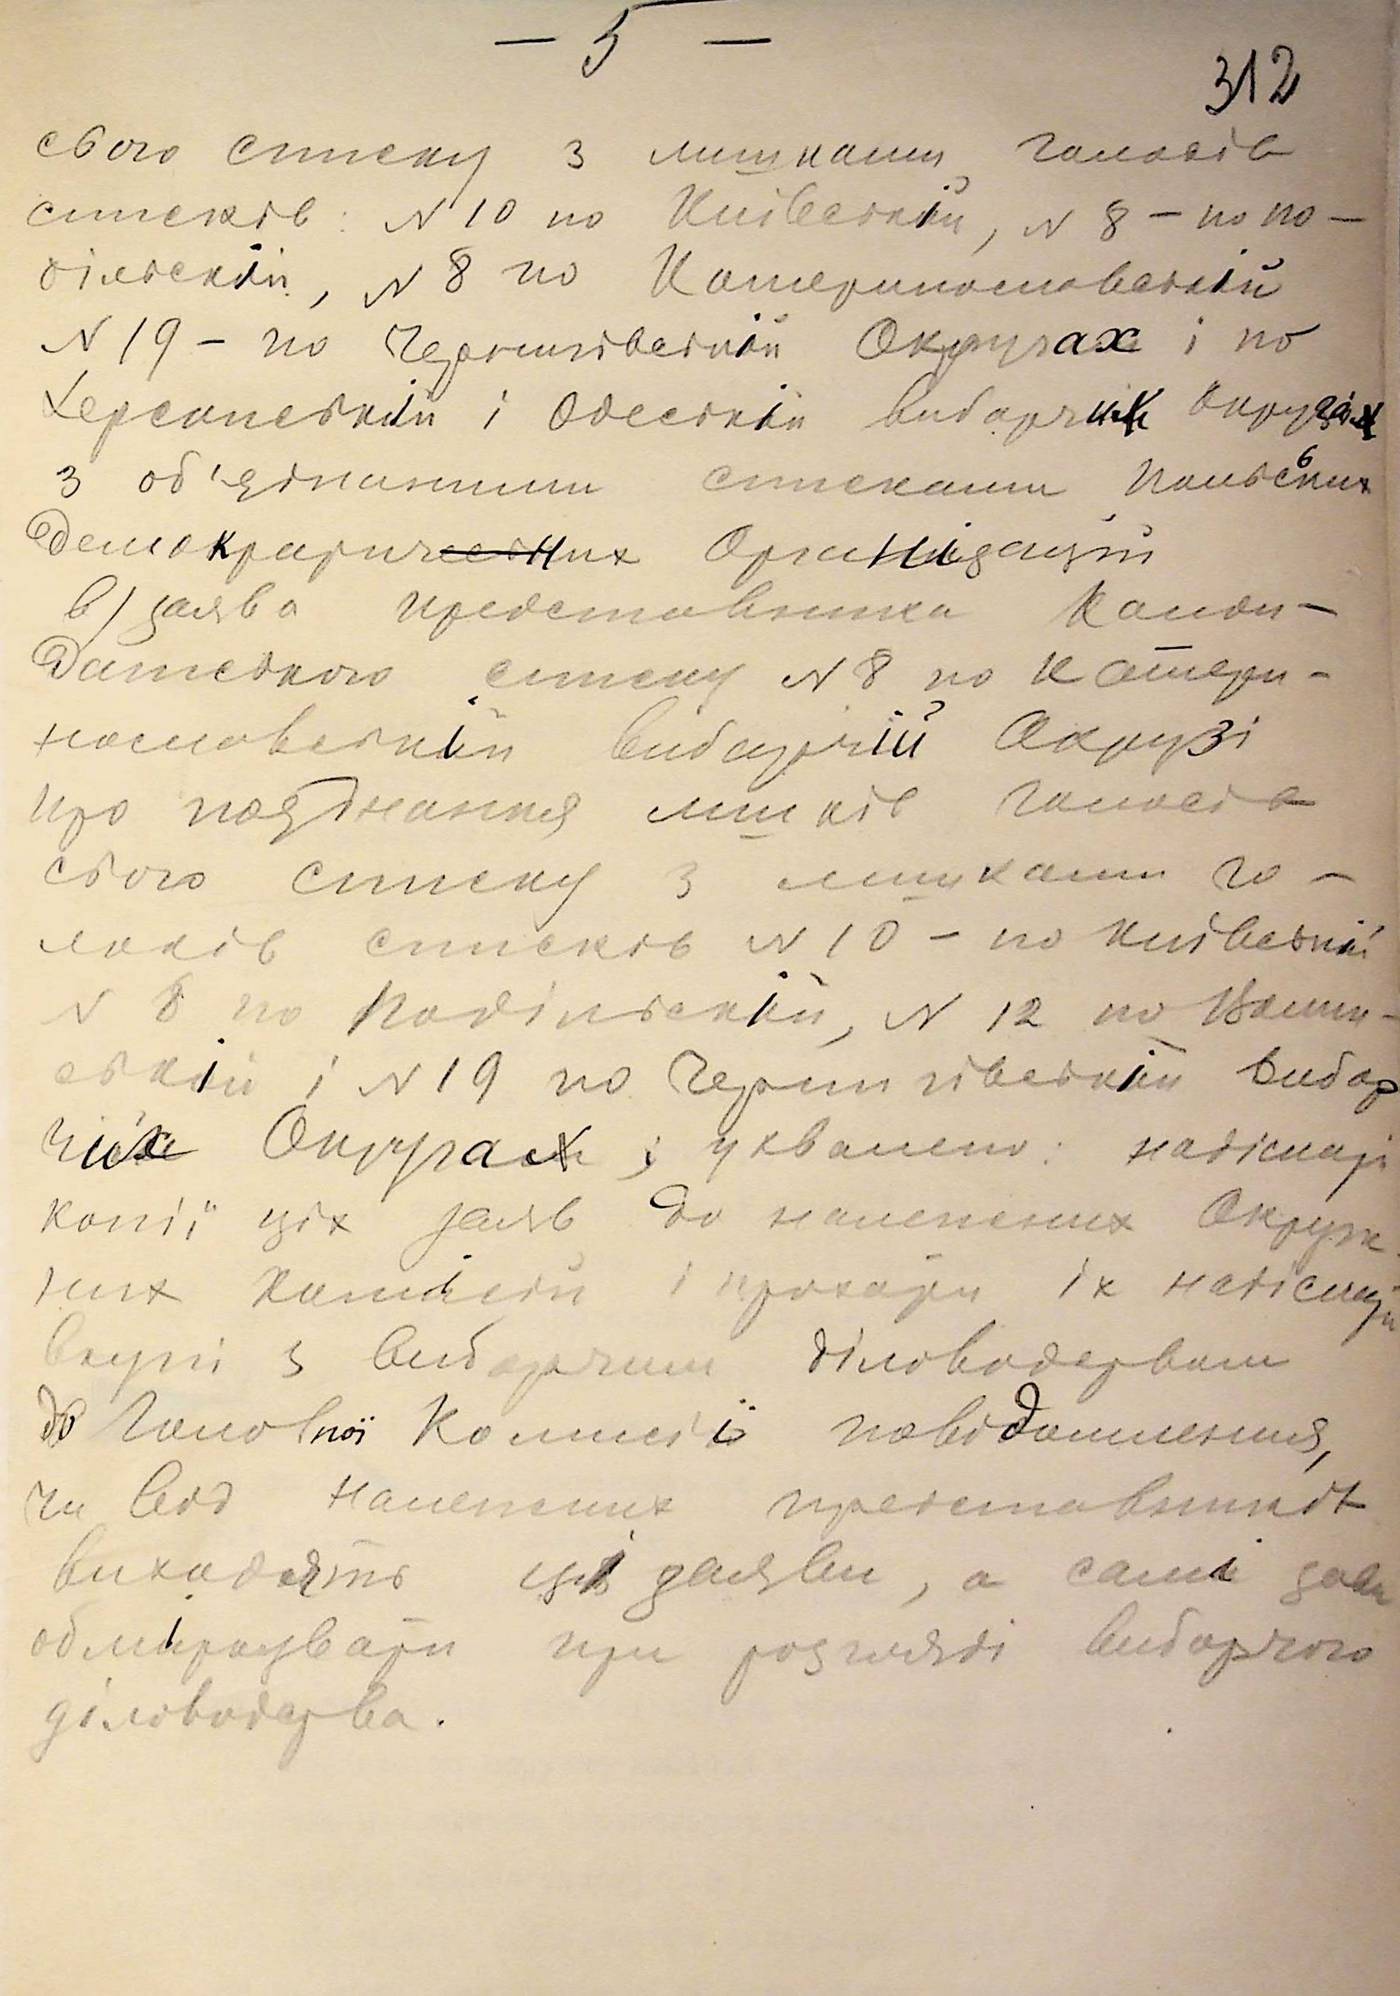 - 5 -
312
свого списку з лишками голосів
списків: N 10 по Київській, N 8 - по По-
дільській, N 8 по Катеринославській
N 19 - по Чернигівській Округах і по
Херсонській і Одеській Виборчих Округах
з об'єднаними списками Польських
Демократичних Організацій
в) заява представникаКанди-
датського списку N 8 по Катери-
нославській Виборчій Окрузі
про поєднання лишків голосів
свого списку з лишками го-
лосів списків N 10 - по Київській
N 8 по Подільській, N 12 по Волин-
ській і N 19 по Чернигівській Вибор
чих Округах; ухвалено: надіслати
копії цих заяв до належних Окруж
них Комісій і прохати їх надіслати
вкупі з Виборчим діловодством
до Головної Комисії повідомлення,
чи від належних представників
виходять ці заяви, а самі заяви
обміркувати при розгляді Виборчого
діловодства.